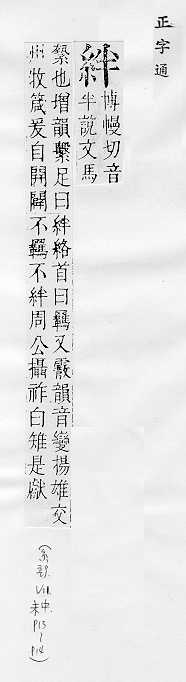 正字通
絆 博慢切音
半說文馬
縶也增韻繫足曰絆絡首曰羈又霰韻音變揚雄交
州牧箴爰自開闢不羈不絆周公攝祚白雉是獻
(糸部.
VII.
未中.
P13
~
P14)